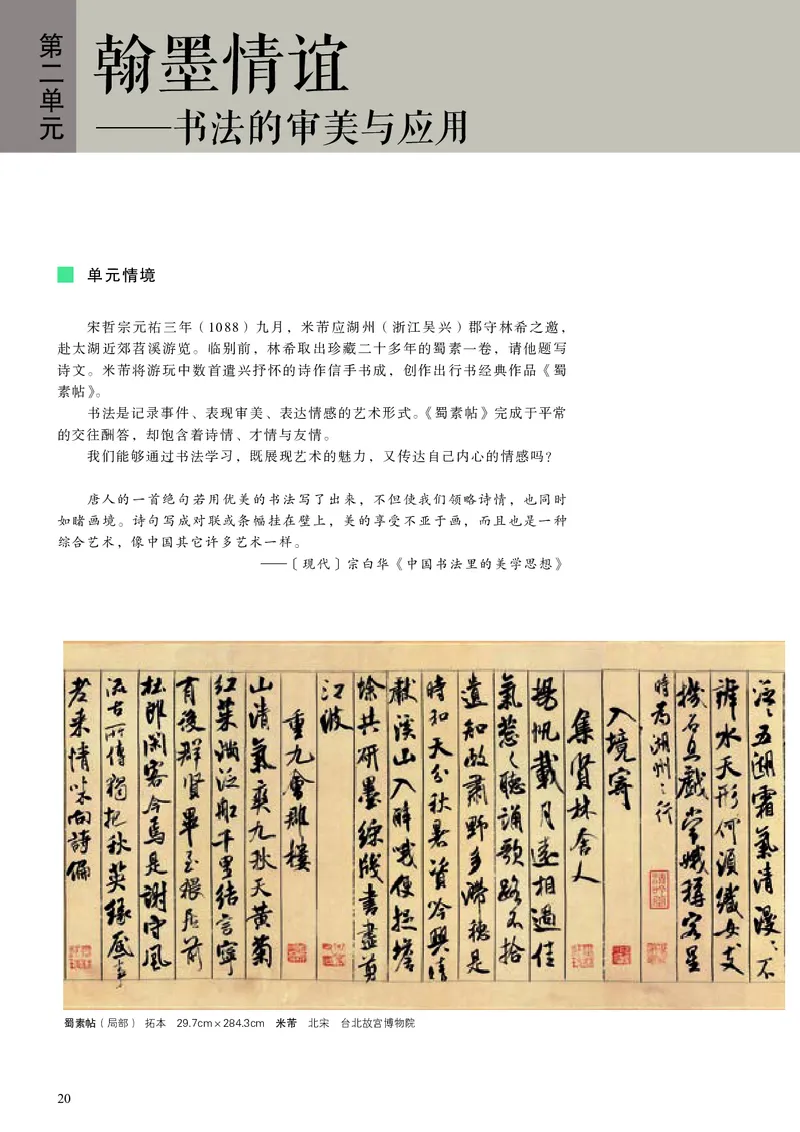 第二单元
翰墨情谊
——书法的审美与应用
单元情境
宋哲宗元祐三年（1088）九月，米芾应湖州（浙江吴兴）郡守林希之邀，
赴太湖近郊苕溪游览。临别前，林希取出珍藏二十多年的蜀素一卷，请他题写
诗文。米芾将游玩中数首遣兴抒怀的诗作信手书成，创作出行书经典作品《蜀
素帖》。
书法是记录事件、表现审美、表达情感的艺术形式。《蜀素帖》完成于平常
的交往酬答，却饱含着诗情、才情与友情。
我们能够通过书法学习，既展现艺术的魅力，又传达自己内心的情感吗？
唐人的一首绝句若用优美的书法写了出来，不但使我们领略诗情，也同时
如睹画境。诗句写成对联或条幅挂在壁上，美的享受不亚于画，而且也是一种
综合艺术，像中国其它许多艺术一样。
——〔现代〕宗白华《中国书法里的美学思想》
泛泛五湖霜氣清漫漫不
辨水天形何須織女支
機石且戲常娥稱客星
時為湖州之行
入境寄
集賢林舍人
揚帆載月遠相過佳
氣蔥蔥聽誦歌路不拾
遺知政肅野多滯穗是
時和天分秋暑資吟興晴
獻溪山入醉哦便捉蟾
蜍共研墨綵牋書盡剪
江波
重九會郡樓
山清氣爽九秋天黃菊
紅茱滿泛船千里結言寧
有後群賢畢至猥居前
杜郎閑客今焉是謝守風
流古所傳獨把秋英緣底事
老來情味向詩偏
蜀素帖（局部） 拓本 29.7cm×284.3cm 米芾 北宋 台北故宫博物院
20